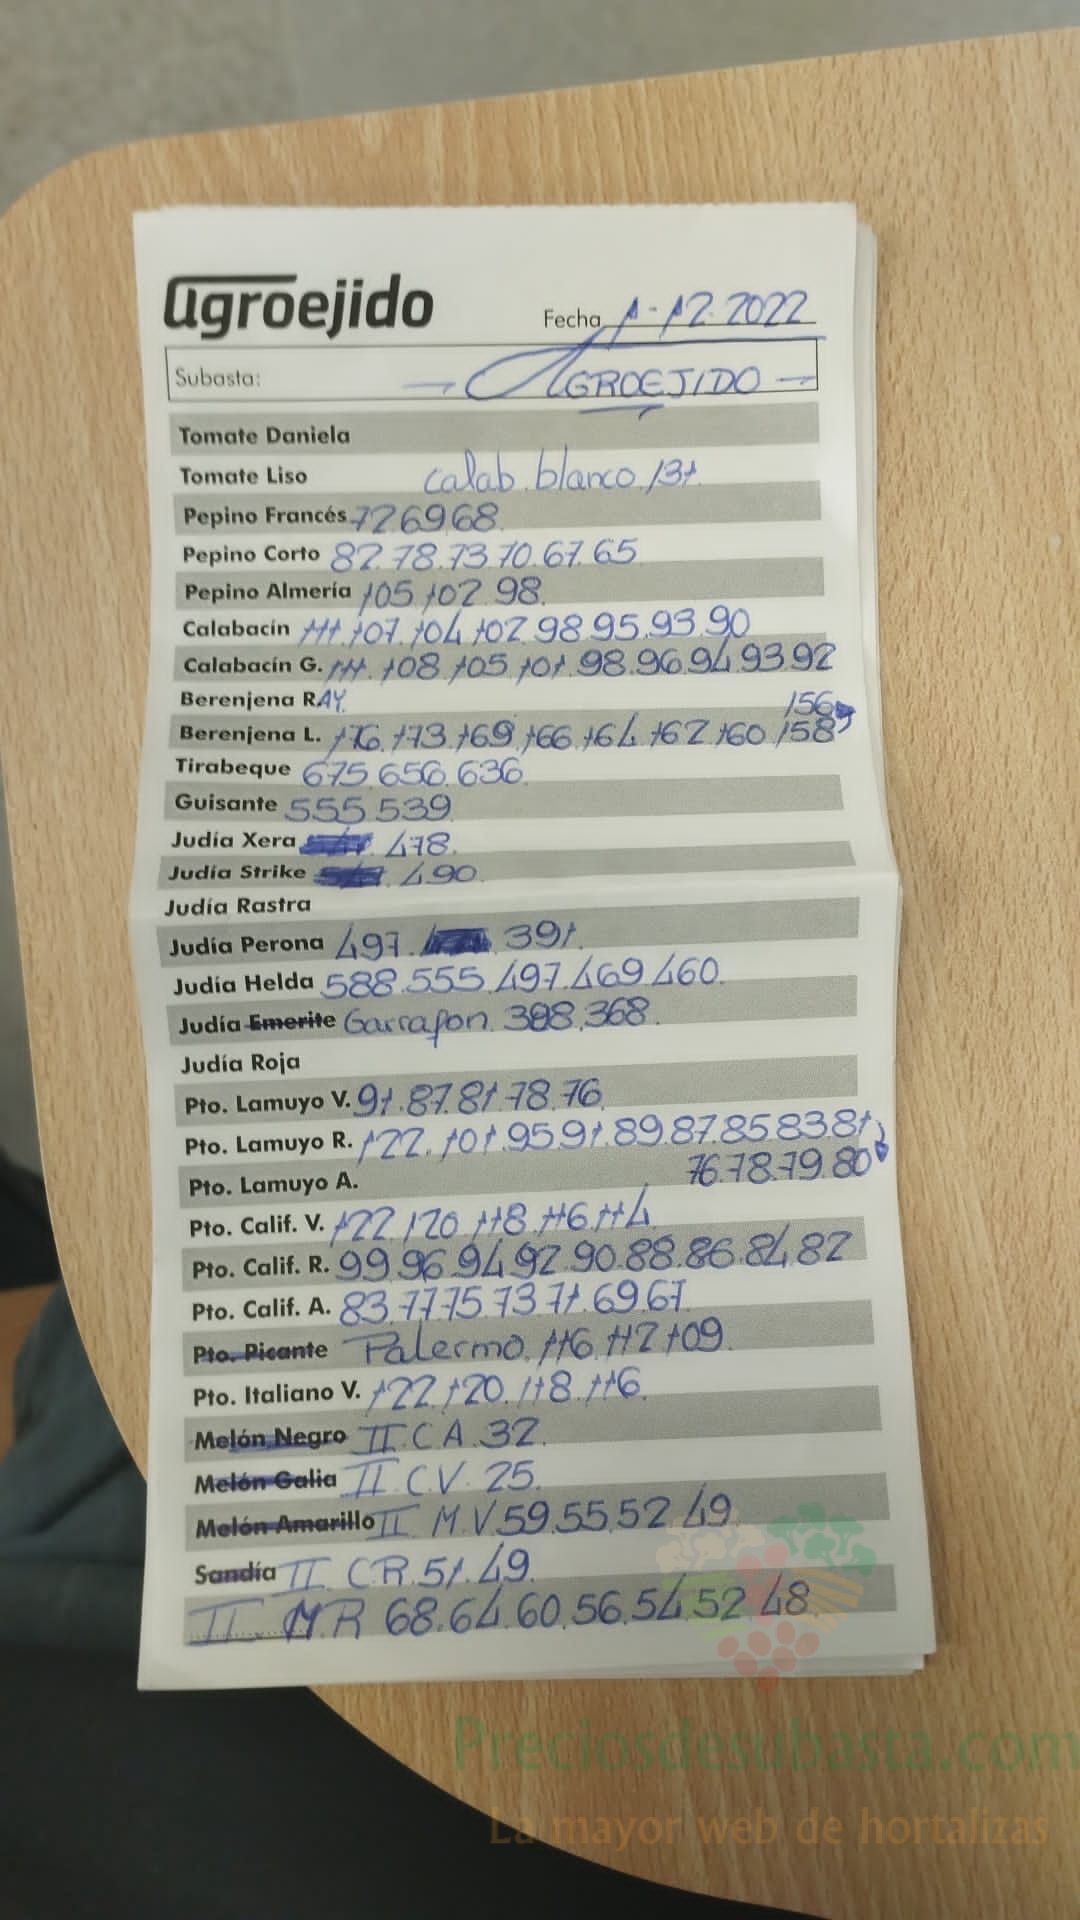 agroejido
Fecha 1-12-2022
Subasta: - AGROEJIDO -
Tomate Daniela
Tomate Liso calab. blanco. 131.
Pepino Francés 72 69 68.
Pepino Corto 82.78.73.70.67.65
Pepino Almería 105 102.98.
Calabacín 111.107.104 102.98.95.93.90
Calabacín G. 111.108.105.101.98.96.94.93.92
Berenjena RAY. 156
Berenjena L. 176.173.169.166.164.162.160.158
Tirabeque 675.656.636.
Guisante 555.539.
Judía Xera 478.
Judía Strike 490.
Judía Rastra
Judía Perona 497. 391.
Judía Helda 588.555.497.469.460.
Judía Emerite Garrafon. 388.368.
Judía Roja
Pto. Lamuyo V. 91.87.81.78.76.
Pto. Lamuyo R. 122.101.95.91.89.87.85.83.81,
Pto. Lamuyo A. 76.78.79.80
Pto. Calif. V. 122.120.118.116.114.
Pto. Calif. R. 99.96.94.92.90.88.86.84.82
Pto. Calif. A. 83.77.75.73.71.69.67.
Pto. Picante Palermo. 116.112.109.
Pto. Italiano V. 122.120.118.116.
Melón Negro II C A. 32.
Melón Galia II C.V. 25.
Melón Amarillo II M.V. 59.55.52.49.
Sandía II C.R. 51.49.
II M.R 68.64.60.56.54.52.48.
Preciosdesubasta.com
La mayor web de hortalizas